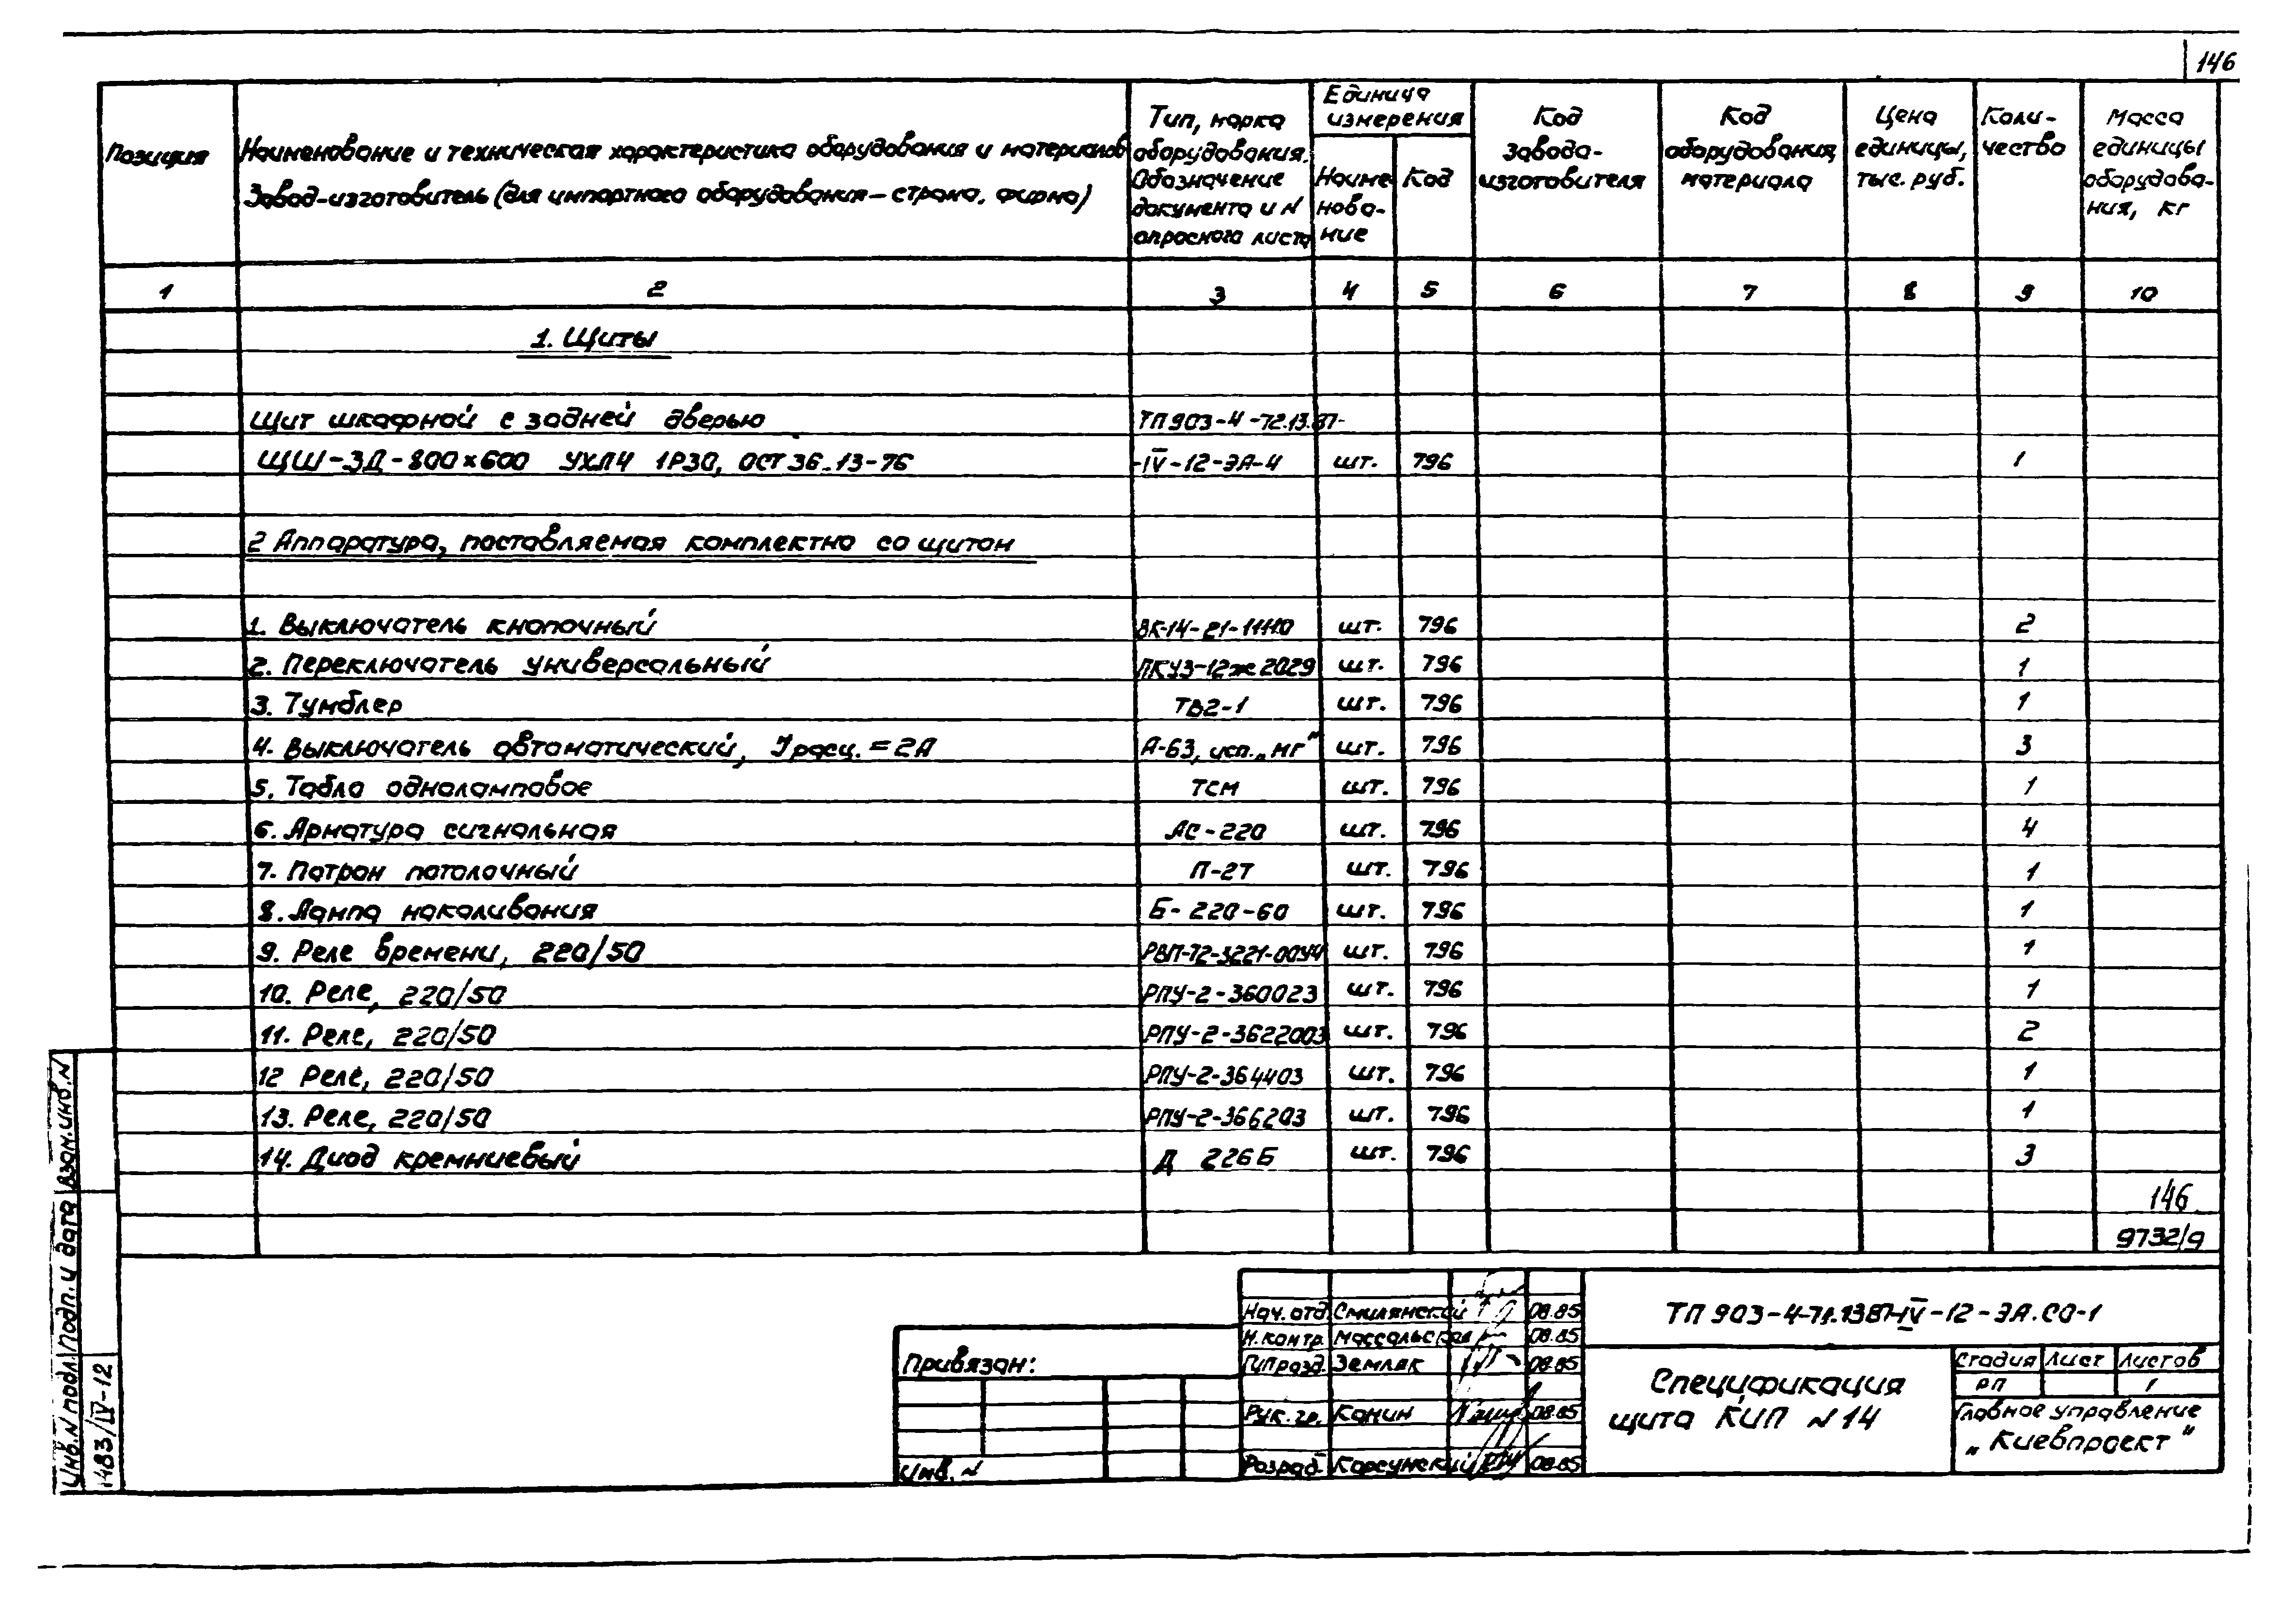 146
Позиция
Наименование и техническая характеристика оборудования и материалов
Завод-изготовитель (для импортного оборудования – страна, фирма)
Тип, марка
оборудования.
Обозначение
документа и №
опросного листа
Единица
измерения
Наиме-
нова-
ние
Код
Код
завода-
изготовителя
Код
оборудования,
материала
Цена
единицы,
тыс. руб.
Коли-
чество
Масса
единицы
оборудова-
ния, кг
1 2 3 4 5 6 7 8 9 10
1. Щиты
Щит шкафной с задней дверью ТП 903-4-72.13.87-
ЩШ-ЗД-800×600 УХЛ4 1Р30, ОСТ 36.13-76 -IV-12-ЭА-4 шт. 796 1
2 Аппаратура, поставляемая комплектно со щитом
1. Выключатель кнопочный ВК-14-21-11110 шт. 796 2
2. Переключатель универсальный ПКУ3-12ж2029 шт. 796 1
3. Тумблер ТВ2-1 шт. 796 1
4. Выключатель автоматический, Iрасц. = 2А А-63, исп. „МГ" шт. 796 3
5. Табло одноламповое ТСМ шт. 796 1
6. Арматура сигнальная АС-220 шт. 796 4
7. Патрон потолочный П-2Т шт. 796 1
8. Лампа накаливания Б-220-60 шт. 796 1
9. Реле времени, 220/50 РВП-72-3221-00У4 шт. 796 1
10. Реле, 220/50 РПУ-2-360023 шт. 796 1
11. Реле, 220/50 РПУ-2-3622003 шт. 796 2
12 Реле, 220/50 РПУ-2-364403 шт. 796 1
13. Реле, 220/50 РПУ-2-366203 шт. 796 1
14. Диод кремниевый Д 226Б шт. 796 3
146
9732/9
Взам. инв. №
Подп. и дата
Инв. № подл.
1483/IV-12
Привязан:
Инв. №
Нач. отд. Смилянский 08.85
Н. контр. 08.85
Земляк 08.85
Рук. гр. Канин 08.85
Разраб. Корсунский 08.85
Спецификация
щита КИП №14
Стадия Лист Листов
РП 1
Главное управление
„Киевпроект"